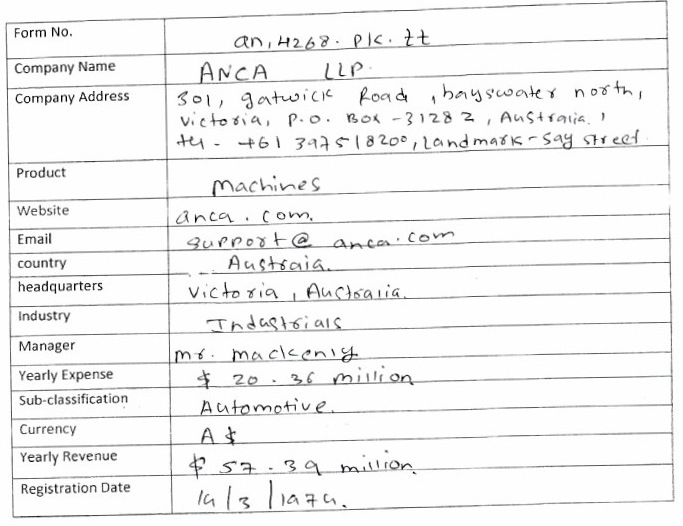 Form No. an, 4268. pk. tt
Company Name ANCA LLP.
Company Address 301, gatwick Road, bayswater north,
victoria, P.O. Box - 31282, Australia,
tel - +61 397518200, Landmark - Say street.
Product machines
Website anca.com.
Email support@anca.com
country Austraia.
headquarters Victoria, Australia.
Industry Industrials
Manager mr. mackenly
Yearly Expense $ 20.36 million
Sub-classification Automotive.
Currency A $
Yearly Revenue $ 57.39 million.
Registration Date 19/3/1974.